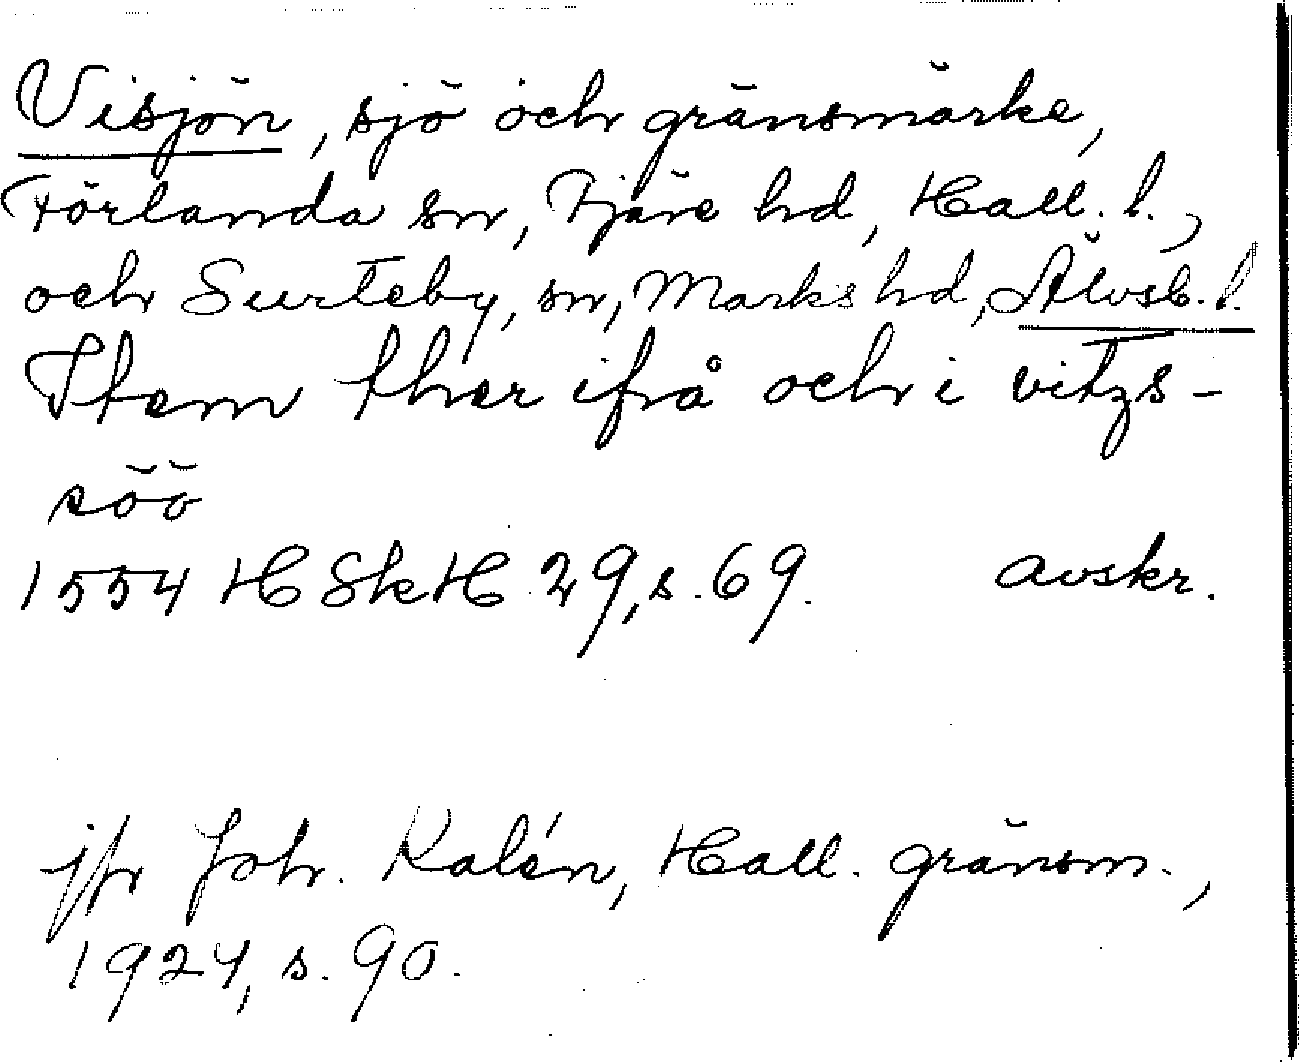 Visjön, sjö och gränsmärke,
Förlanda sn, Fjäre hd, Hall. l.,
och Surteby, sn, Marks hd, Älvsb. l.
Item ther ifrå och i vitzs-
söö
1554 H Sk H 29, s. 69. avskr.
jfr Joh. Kalén, Hall. gränsm.,
1924, s. 90.